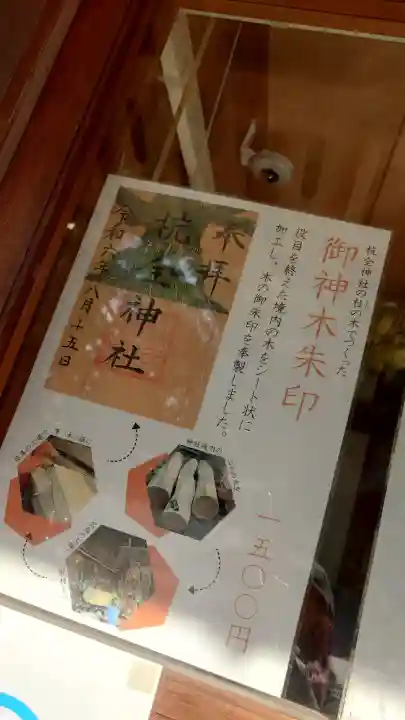 杭全神社の杜の木でつくった
御神木朱印
役目を終えた境内の木をシート状に
加工し、木の御朱印を奉製しました。
奉拝
杭全神社
令和六年八月十五日
一五〇〇円